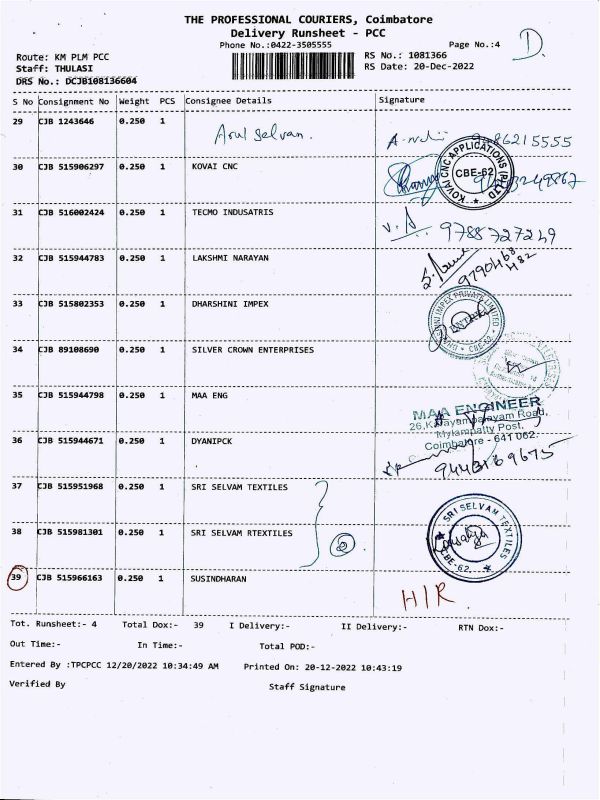 THE PROFESSIONAL COURIERS, Coimbatore
Delivery Runsheet - PCC
Phone No.:0422-3505555
Page No.:4
D.
Route: KM PLM PCC
RS No.: 1081366
Staff: THULASI
RS Date: 20-Dec-2022
DRS No.: DCJB108136604
S No Consignment No Weight PCS Consignee Details Signature
29 CJB 1243646 0.250 1 Arul Selvan.
30 CJB 515906297 0.250 1 KOVAI CNC
KOVAI CNC APPLICATIONS (P) LTD
CBE-62
31 CJB 516002424 0.250 1 TECMO INDUSATRIS
9788727249
32 CJB 515944783 0.250 1 LAKSHMI NARAYAN
9790468
482
33 CJB 515802353 0.250 1 DHARSHINI IMPEX
IMPEX PRIVATE LIMITED
CBE-62
34 CJB 89108690 0.250 1 SILVER CROWN ENTERPRISES
35 CJB 515944798 0.250 1 MAA ENG
MAA ENGINEER
Mylampatty Post,
Coimbatore - 641 062.
36 CJB 515944671 0.250 1 DYANIPCK
37 CJB 515951968 0.250 1 SRI SELVAM TEXTILES
38 CJB 515981301 0.250 1 SRI SELVAM RTEXTILES
2
SRI SELVAM TEXTILES
CBE-62.
39 CJB 515966163 0.250 1 SUSINDHARAN
H/R.
Tot. Runsheet:- 4 Total Dox:- 39 I Delivery:- II Delivery:- RTN Dox:-
Out Time:- In Time:- Total POD:-
Entered By :TPCPCC 12/20/2022 10:34:49 AM Printed On: 20-12-2022 10:43:19
Verified By Staff Signature